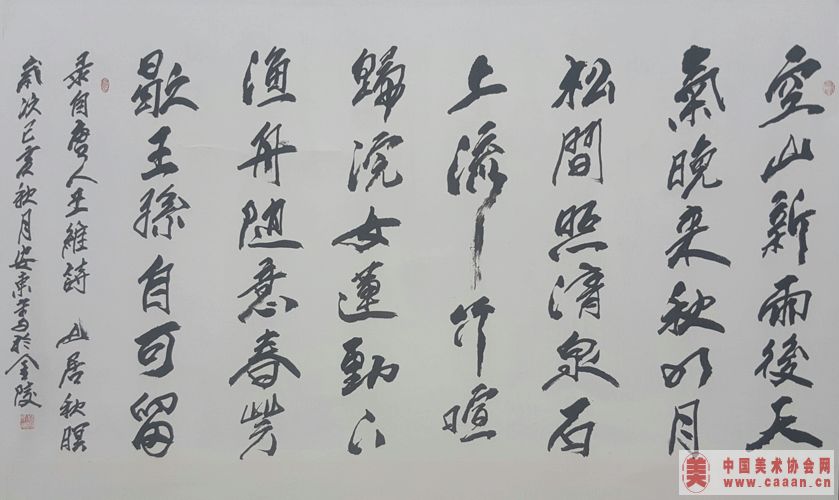 空山新雨後天
氣晚来秋明月
松間照清泉石
上流竹暄
歸浣女蓮動下
漁舟随意春芳
歇王孫自可留
录自唐人王維詩 山居秋暝
歲次己亥秋月安東於金陵
美
中国美术协会网
www.caaan.cn